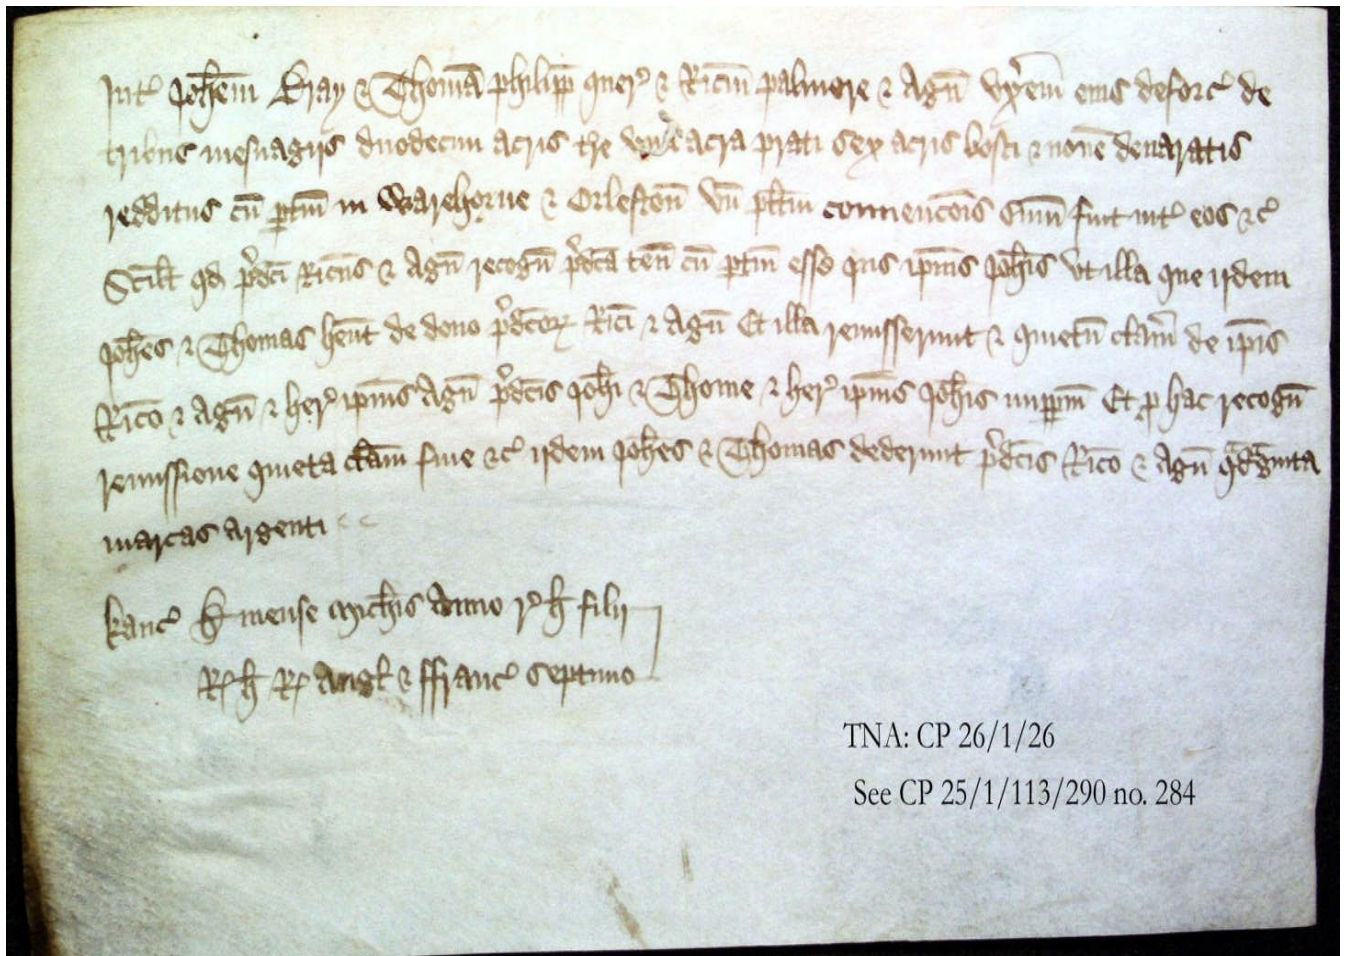 Int' Joh̄em Bray & Thomā philipp̄ quer' & Ric̄m palmere & Agn̄ vx̄em eius deforc' de
tribus mesuagijs duodecim acris t̄re vna acra prati sex acris bosci & none denaratis
redditus cū p̄tin̄ in Warehorne & Orleston̄ vn̄ pl̄itm conuenc̄ois sum̄ fuit int' eos &c'
Scil̄t qd p̄dc̄i Ric̄us & Agn̄ recogn̄ p̄dc̄a ten̄ cū p̄tin̄ esse ius ip̄ius Joh̄is vt illa que ijdem
Joh̄es & Thomas h̄ent de dono p̄dc̄oꝝ Ric̄i & Agn̄ Et illa remiserunt & quietū clam̄ de ip̄is
Ric̄o & Agn̄ & her' ip̄ius Agn̄ p̄dc̄is Joh̄i & Thome & her' ip̄ius Joh̄is imp̄p̄m Et ꝓ hac recogn̄
remissione quieta clam̄ fine &c' ijdem Joh̄es & Thomas dederunt p̄dc̄is Ric̄o & Agn̄ quadraginta
marcas argenti
kanc' A mense Mich̄is anno r' h̄ filij
R' h̄ R' Angl̄ & ffranc' septimo
TNA: CP 26/1/26
See CP 25/1/113/290 no. 284